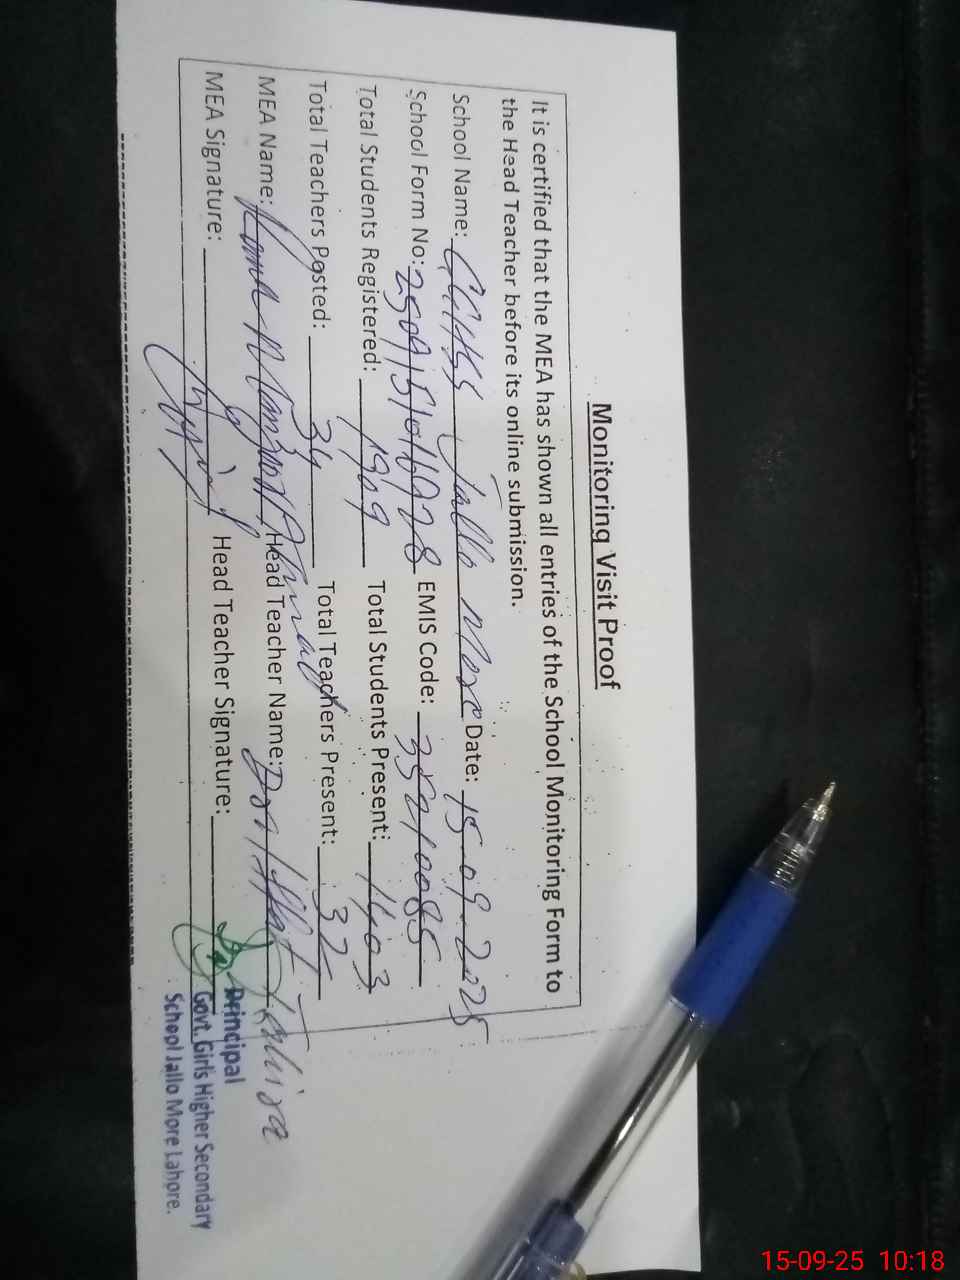 Monitoring Visit Proof
It is certified that the MEA has shown all entries of the School Monitoring Form to
the Head Teacher before its online submission.
School Name: GGHSS Jallo More Date: 15-09-2025
School Form No: EMIS Code: 35210085
Total Students Registered: 1909 Total Students Present: 1403
Total Teachers Posted: 34 Total Teachers Present: 32
MEA Name: Head Teacher Name: Tahira
MEA Signature: Head Teacher Signature:
Principal
Govt. Girls Higher Secondary
School Jallo More Lahore.
15-09-25 10:18